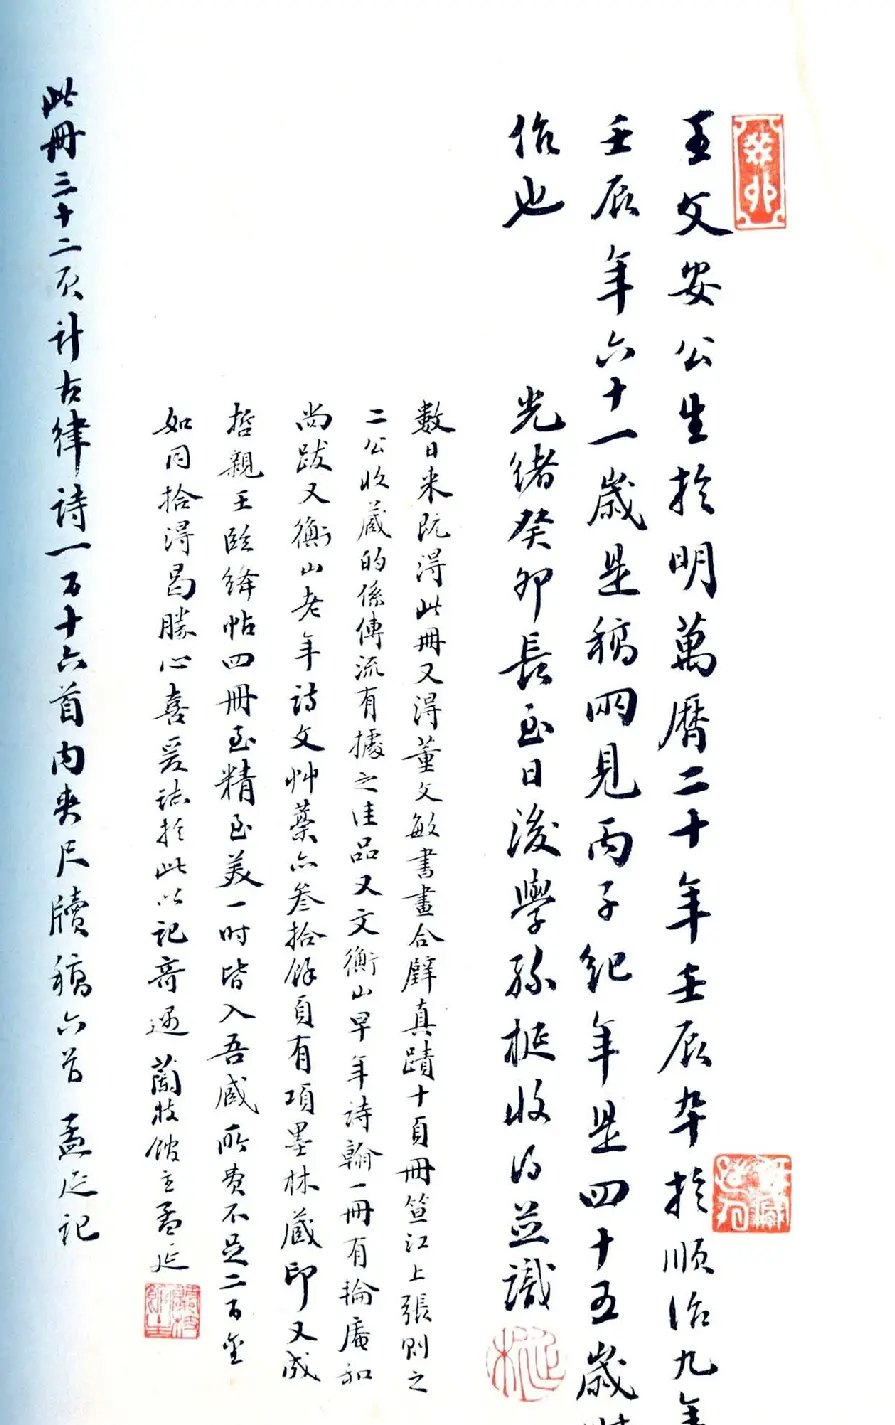 癸卯
王文安公生於明萬曆二十年壬辰卒於順治九年
壬辰年六十一歲是稿兩見丙子紀年是四十五歲時
作也
光緒癸卯長至日後學孫梴收得並識
梴
數日來既得此冊又得董文敏書畫合璧真蹟十頁冊笪江上張則之
二公收藏的係傳流有據之佳品又文衡山早年詩翰一冊有掄庵和
尚跋又衡山老年詩文艸藁六叄拾餘頁有項墨林藏印又成
哲親王臨絳帖四冊至精至美一時皆入吾藏所費不足二百金
如同拾得曷勝心喜爰誌於此以記奇遇 蘭枝館主孟延
此冊三十二頁計古律詩一百十六首內夾尺牘稿六首 孟延記